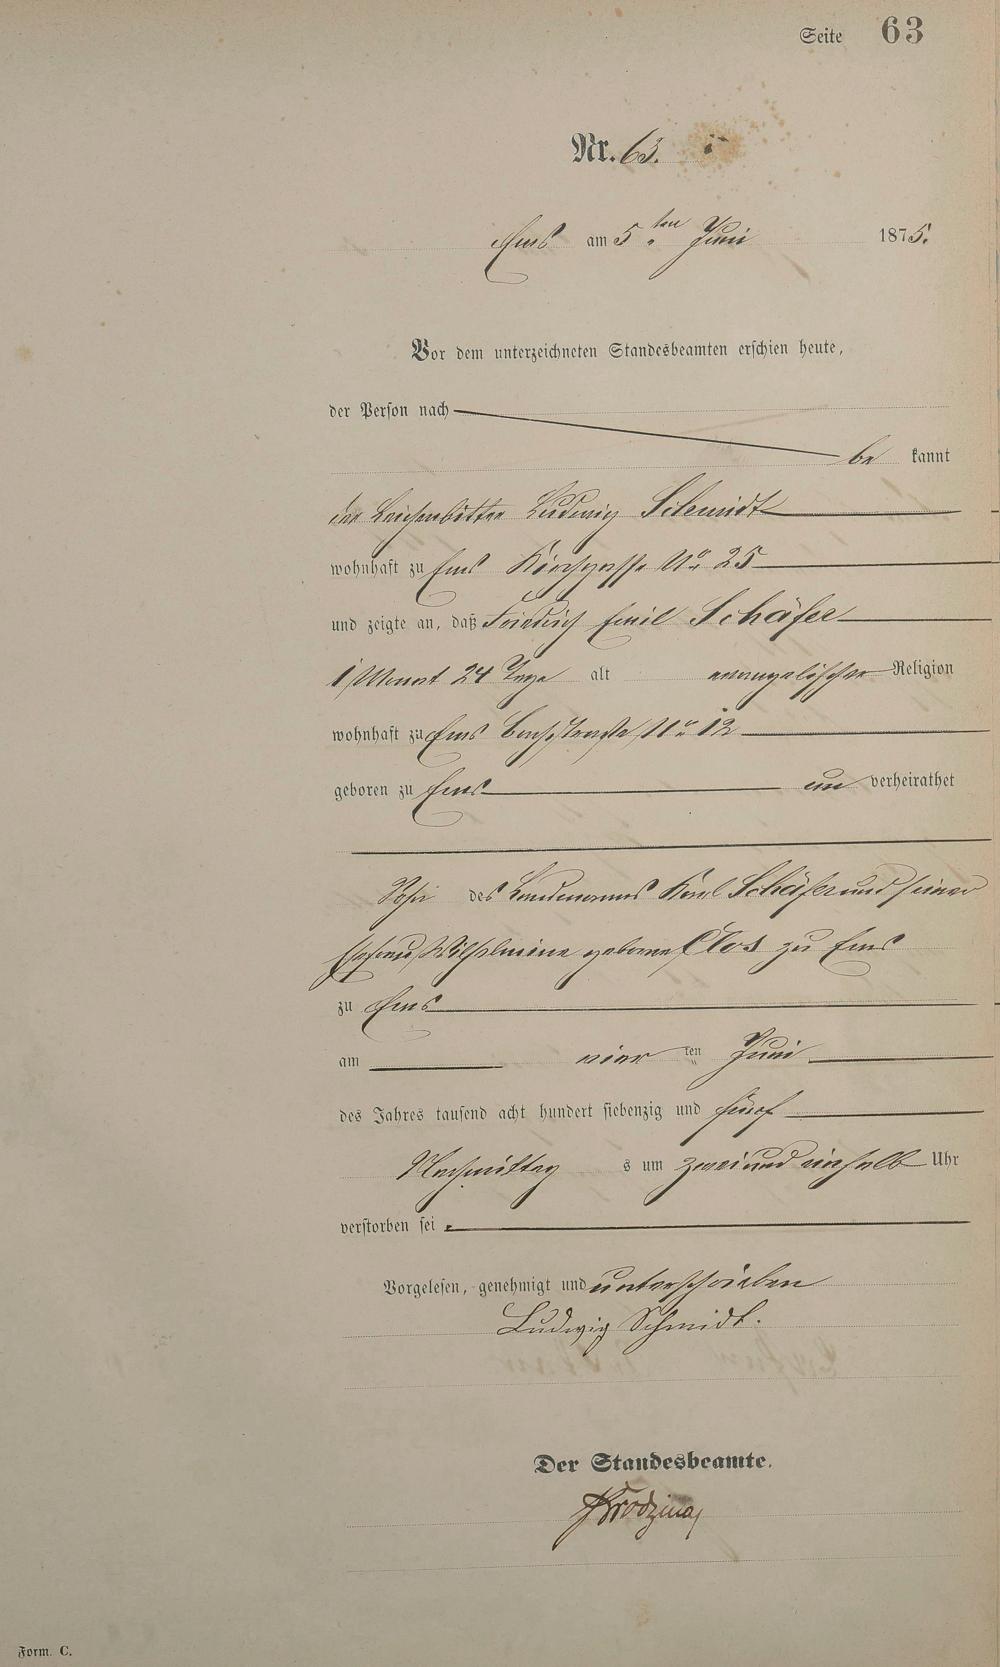 Seite 63
Nr. 63.
Ems am 5ten Juni 1875.
Vor dem unterzeichneten Standesbeamten erschien heute,
der Person nach
be kannt
der Leichenbitter Ludwig Schmidt
wohnhaft zu Ems Kirchgasse No 25
und zeigte an, daß Friedrich Emil Schäfer
1 Monat 24 Tage alt evangelischer Religion
wohnhaft zu Ems Bachstraße No 12
geboren zu Ems un verheirathet
Sohn des Karl Schäfer und seiner
Ehefrau Wilhelmine geborne Clos zu Ems
zu Ems
am vier ten Juni
des Jahres tausend acht hundert siebenzig und fünf
Nachmittag s um zwei und einhalb Uhr
verstorben sei.
Vorgelesen, genehmigt und unterschrieben
Ludwig Schmidt.
Der Standesbeamte.
Form. C.